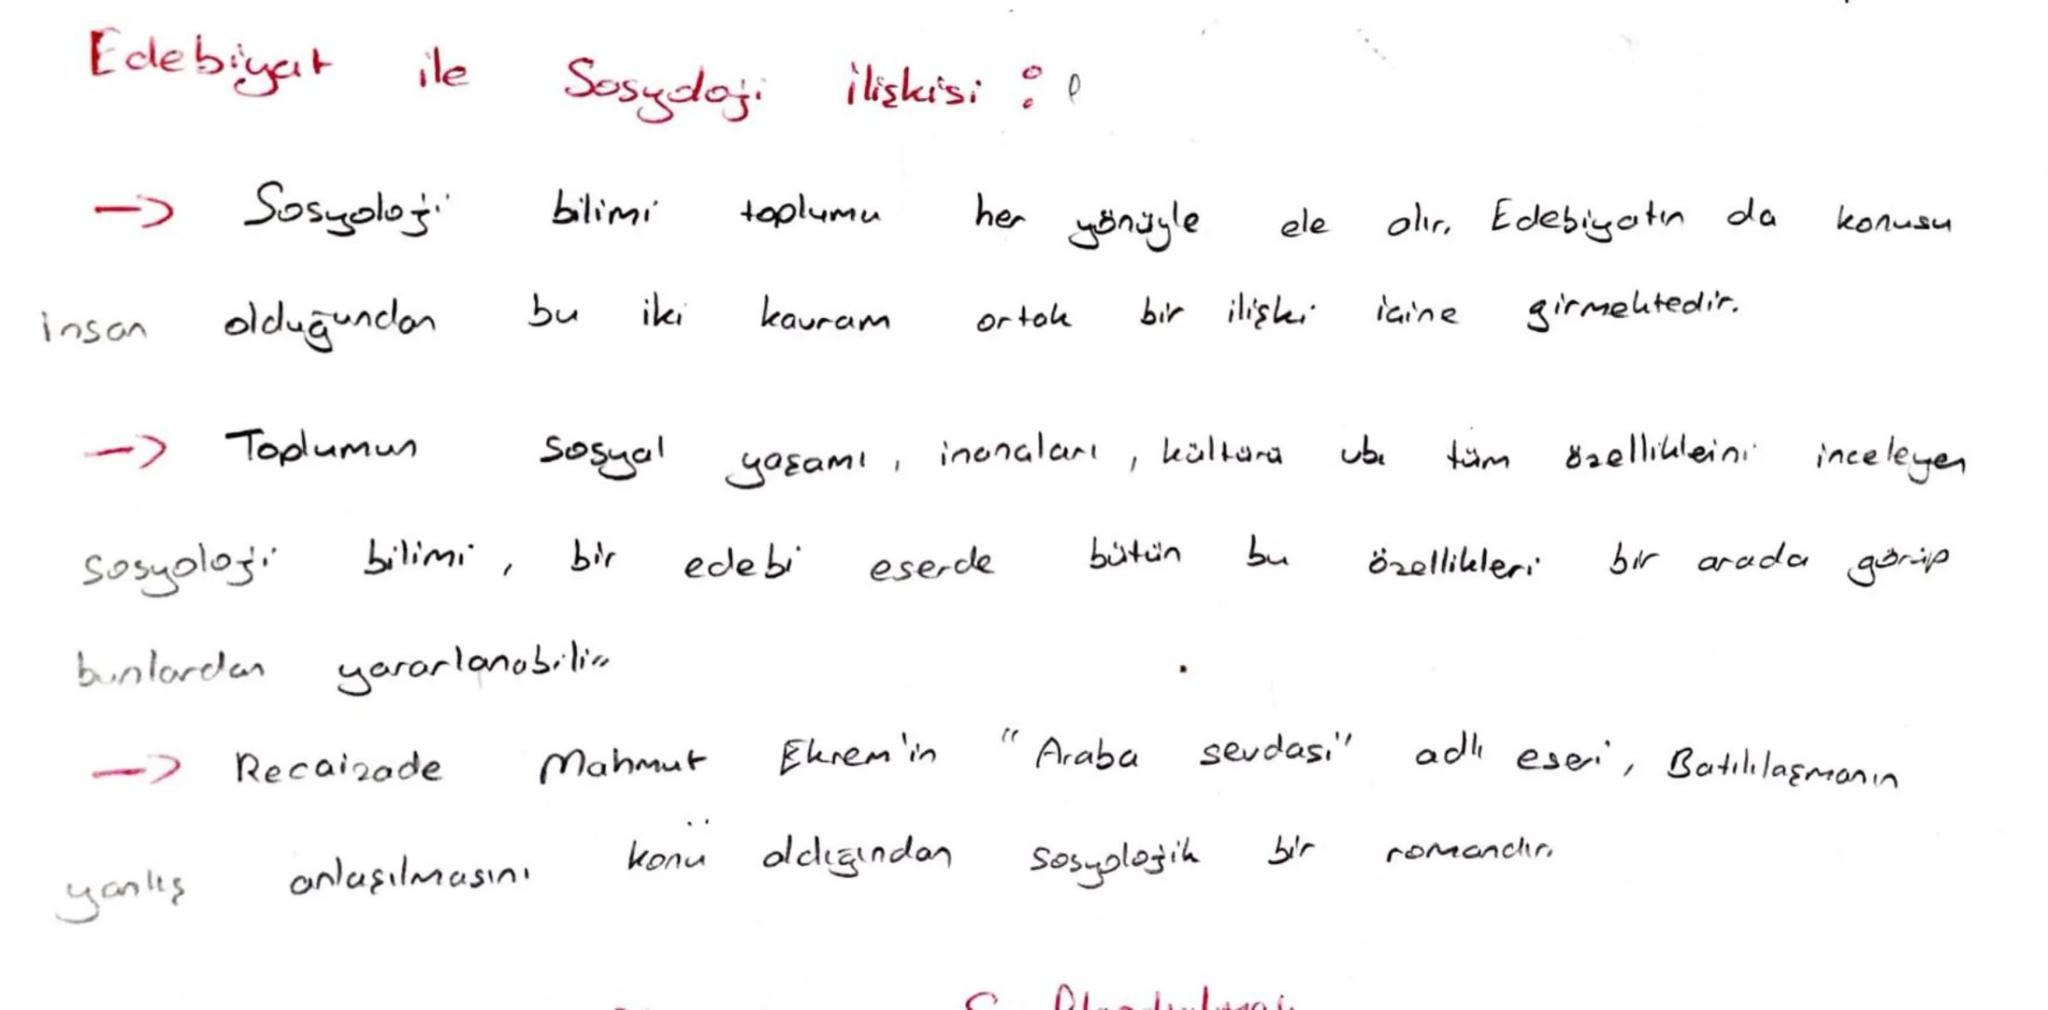 Edebiyat ile Sosyoloji ilişkisi :
→ Sosyoloji bilimi toplumu her yönüyle ele alır. Edebiyatın da konusu
insan olduğundan bu iki kavram ortak bir ilişki içine girmektedir.
→ Toplumun sosyal yaşamı, inançları, kültürü vb. tüm özellikleini inceleyen
sosyoloji bilimi, bir edebi eserde bütün bu özellikleri bir arada görüp
bunlardan yararlanabilir
→ Recaizade Mahmut Ekrem'in "Araba sevdası" adlı eseri, Batılılaşmanın
yanlış anlaşılmasını konu aldığından sosyolojik bir romandır.